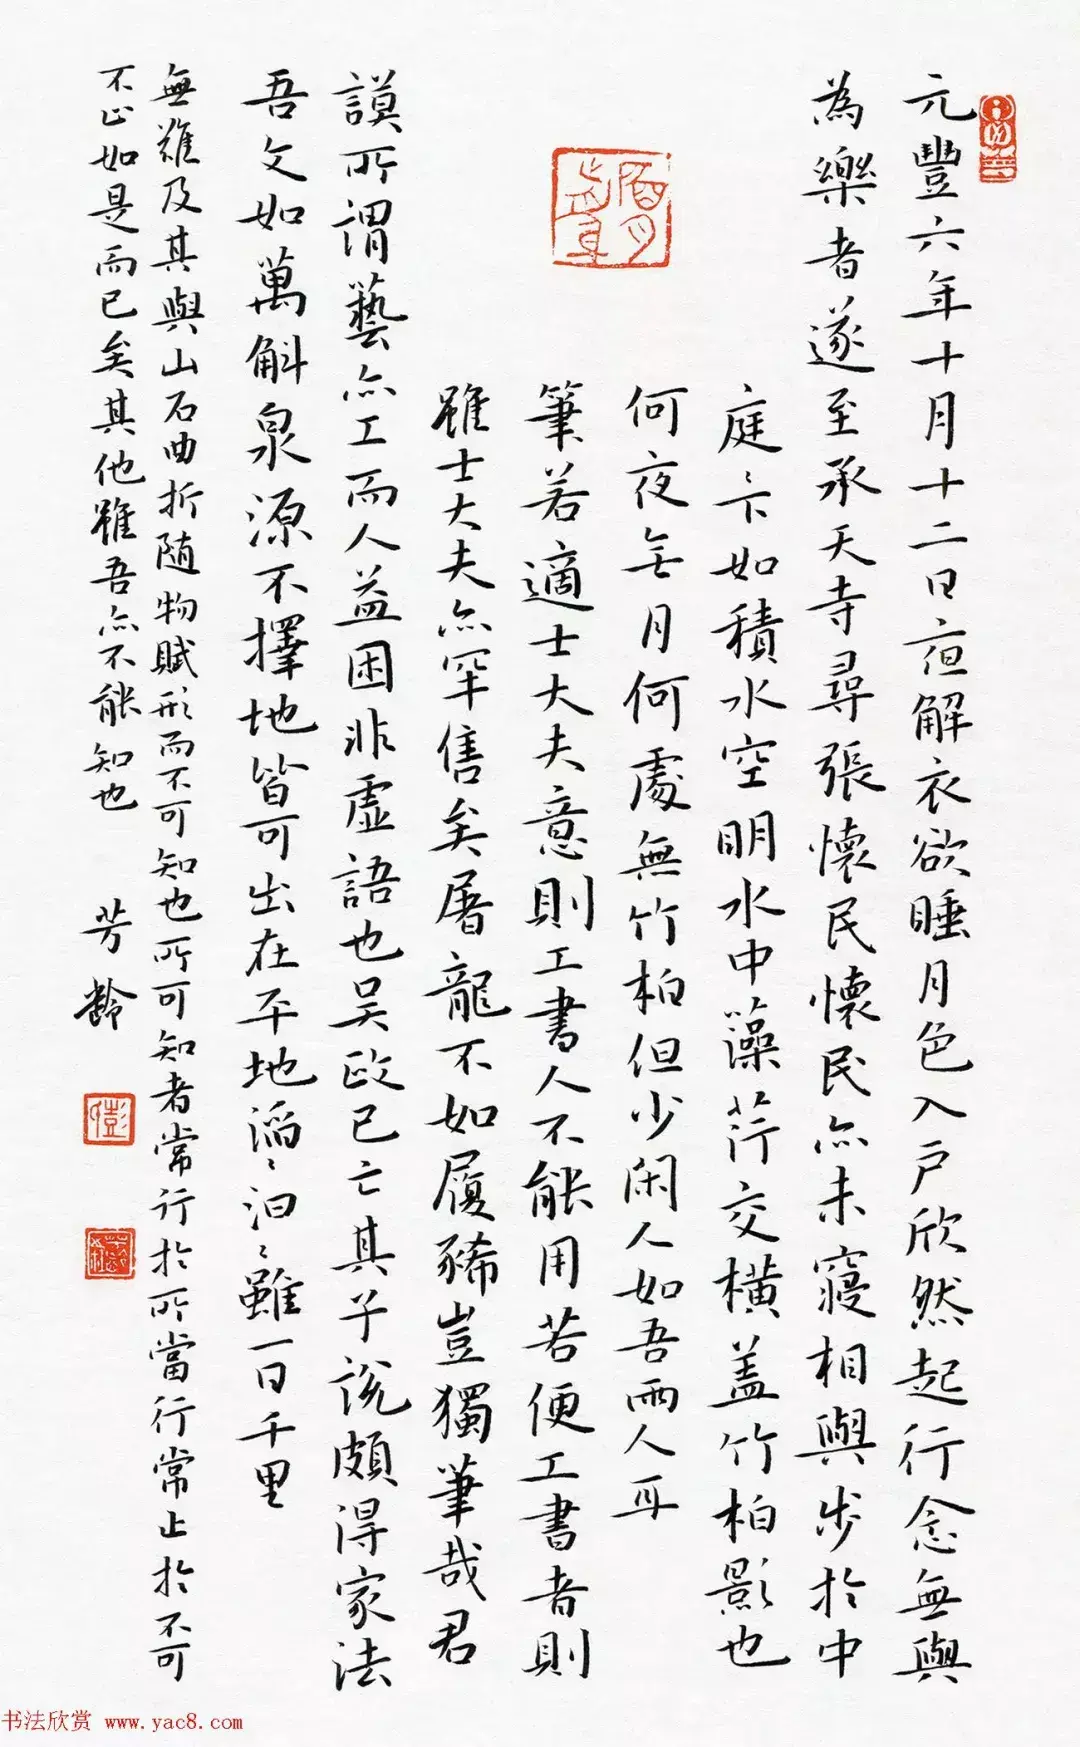 元豐六年十月十二日夜解衣欲睡月色入戶欣然起行念無與
為樂者遂至承天寺尋張懷民懷民亦未寢相與步於中
庭庭下如積水空明水中藻荇交橫蓋竹柏影也
何夜無月何處無竹柏但少閑人如吾兩人耳
筆若適士大夫意則工書人不能用若便工書者則
雖士大夫亦罕售矣屠龍不如履豨豈獨筆哉君
謨所謂藝亦工而人益困非虛語也吴政已亡其子說頗得家法
吾文如萬斛泉源不擇地皆可出在平地滔々汩々雖一日千里
無難及其與山石曲折隨物賦形而不可知也所可知者常行於所當行常止於不可
不止如是而已矣其他雖吾亦不能知也 芳齡
书法欣赏 www.yac8.com